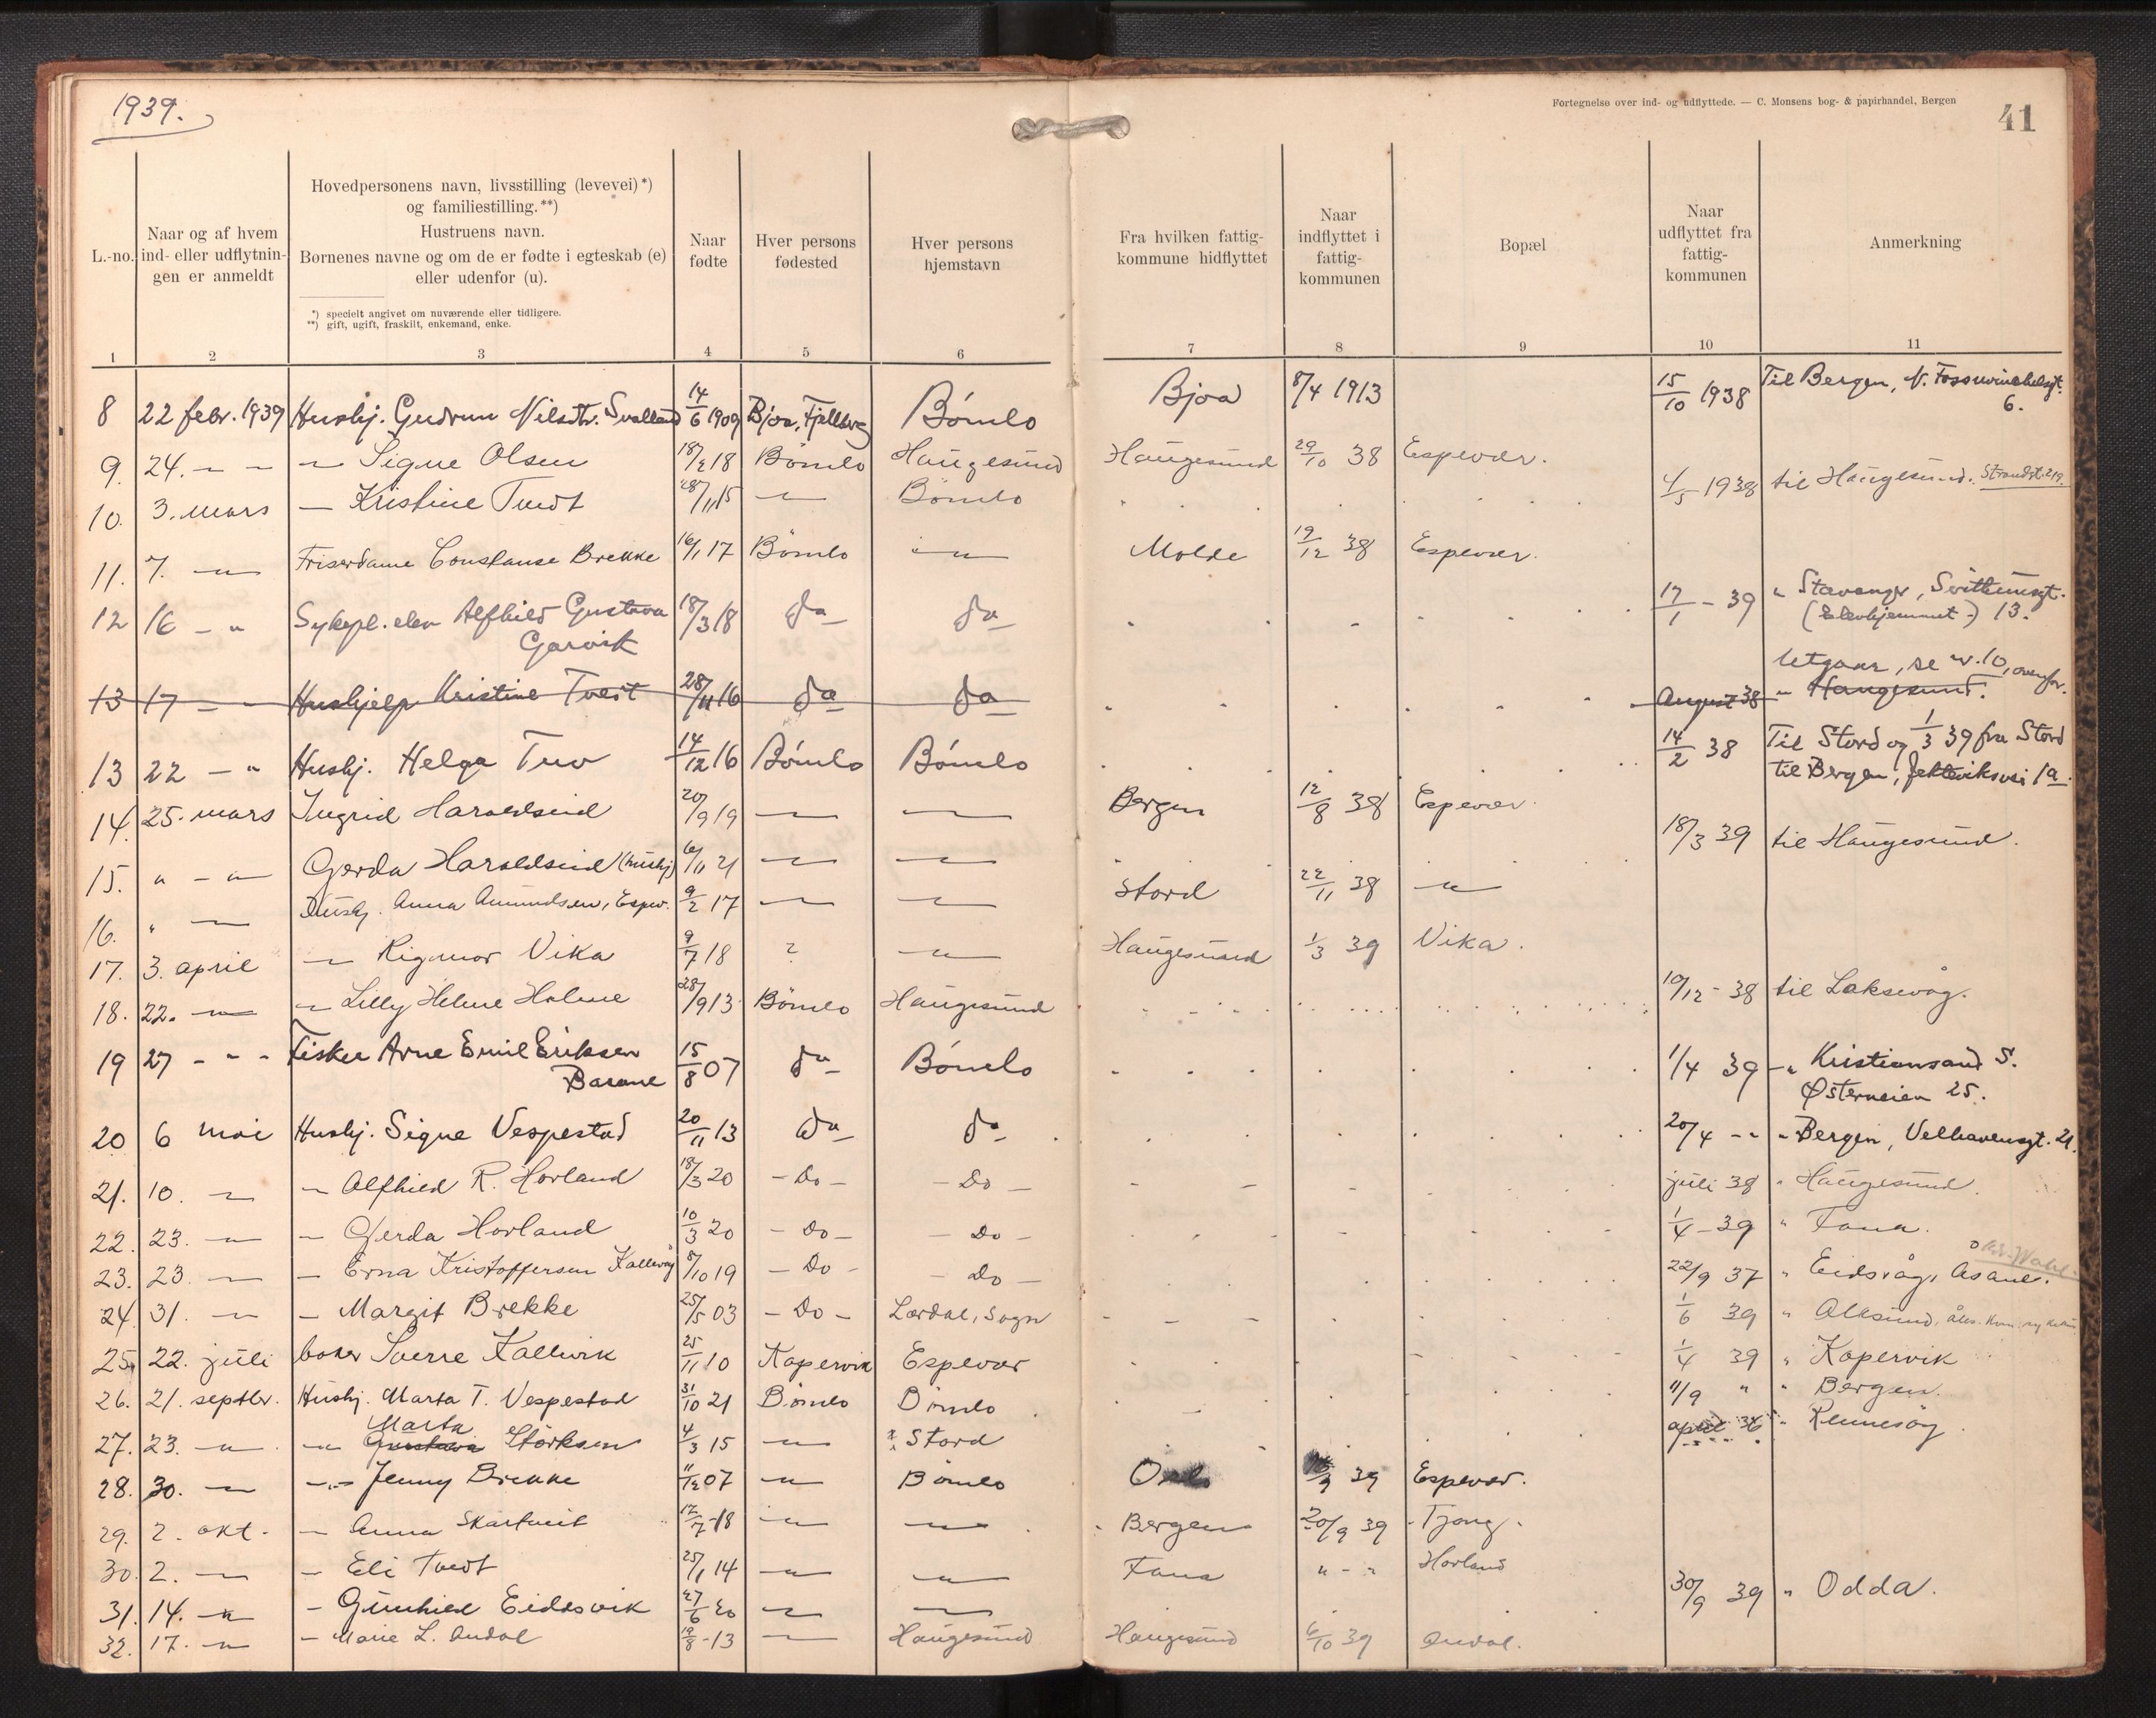 1939.
Fortegnelse over ind- og udflyttede. — C. Monsens bog- & papirhandel, Bergen
41
L.-no.
Naar og af hvem ind- eller udflytnin- gen er anmeldt
Hovedpersonens navn, livsstilling (levevei) *)
og familiestilling. **)
Hustruens navn.
Børnenes navne og om de er fødte i egteskab (e)
eller udenfor (u).
*) specielt angivet om nuværende eller tidligere.
**) gift, ugift, fraskilt, enkemand, enke.
Naar fødte
Hver persons fødested
Hver persons hjemstavn
Fra hvilken fattig- kommune hidflyttet
Naar indflyttet i fattig- kommunen
Bopæl
Naar udflyttet fra fattig- kommunen
Anmerkning
1 2 3 4 5 6 7 8 9 10 11
8 22 febr. 1939 Hushj. Gudrun Nilsdtr. Svalland 14/6 1909 Bjoa, Fjellberg Bömlo Bjoa 8/4 1913 15/10 1938 Til Bergen, 6.
9. 24. — — — Signe Olsen 18/2 18 Bömlo Haugesund Haugesund 29/10 38 Espevær.
10. 3. mars — Kristine Tvedt 28/11 15 — Bömlo 4/5 1938 til Haugesund. Strandgt. 219.
11. 7. — Friserdame Constanse Brekke 16/1 17 Bömlo — Molde 19/12 38 Espevær.
12 16 — " Sykepl. elev Alfhild Gustava Garvik 18/3 18 do do 17/1 - 39 " Stavanger, (Elevhjemmet) 13.
13 17 — - Hushjelp Kristine Tvedt 28/11 16 do do August 38 " Haugesund. Utgaar, se nr. 10, ovenfor.
13 22 — " Hushj. Helga Tuv 14/12 16 Bömlo Bömlo 14/2 38 Til Stord og 1/3 39 fra Stord
til Bergen, 1a
14. 25. mars Ingrid Haraldseid 20/9 19 — — Bergen 12/8 38 Espevær.
15. " — " Gerda Haraldseid (hushj) 6/11 21 — — 18/3 39 til Haugesund.
16. " — Hushj. Anna Amundsen, Espev. 9/2 17 — — Stord 22/11 38 — " —
17. 3. april — Rigmor Vika 9/7 18 ? — Haugesund 1/3 39 Vika.
18. 22. — — Lilly Helene Holme 28/9 13 Bömlo Haugesund 10/12 - 38 til Laksevåg.
19 27 - " - Fisker Arne Emil Eriksen Barane 15/8 07 do Bömlo 1/4 39 — " Kristiansand S.
Østerveien 25.
20 6 mai Hushj. Signe Vespestad 20/11 13 do do 20/4 - " " Bergen, Velhavensgt. 21.
21. 10. — — Alfhild R. Hovland 18/3 20 — Do — — Do — juli 38 " Haugesund.
22. 23. — — Gerda Hovland 10/3 20 — Do — — Do — 1/4 - 39 " Fana.
23. 23. — — Erna Kristoffersen Kallevåg 8/10 19 — Do — — Do — 22/9 37 " Eidsvåg, Åsane.
24. 31. — — Margit Brekke 25/5 03 — Do — Lærdal, Sogn 1/6 39 " Ålesund,
25. 22. juli baker Sverre Kallevik 25/11 10 Kopervik Espevær 1/4 39 " Kopervik
26. 21. septbr. Hushj. Marta T. Vespestad 31/10 21 Bömlo Bömlo 11/9 " " Bergen.
27. 23. — " — Marta Gustava Störksen 4/3 15 — " — Stord april 36 " Rennesöy
28. 30. — — " — Jenny Brekke 11/12 07 — " — Bömlo Oslo 39 Espevær.
29. 2. okt. — Anna Skartveit 12/7 - 18 — " — — Bergen 20/9 39 Tjong.
30. 2. — — Eli Tvedt 25/1 14 — " — — " — Fana " - " Hovland
31. 14. — " — Gunhild Eidesvik 27/6 20 — — 30/9 39 " Odda.
32. 17. — " — Marie L. Andal 19/8 - 13 — Haugesund Haugesund 6/10 39 Andal.